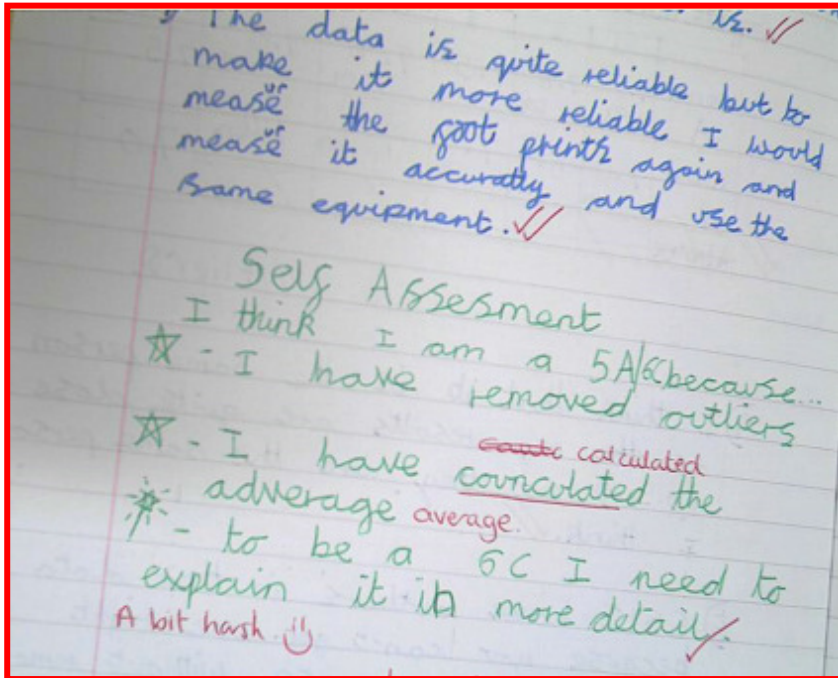 is.
The data is quite reliable but to
make it more reliable I would
measur the foot prints again and
measur it accuratly and use the
same equipment.
Self Assesment
I think I am a 5A/6C because...
- I have removed outliers
calculated
- I have counculated the
adverage average.
- to be a 6C I need to
explain it in more detail.
A bit harsh